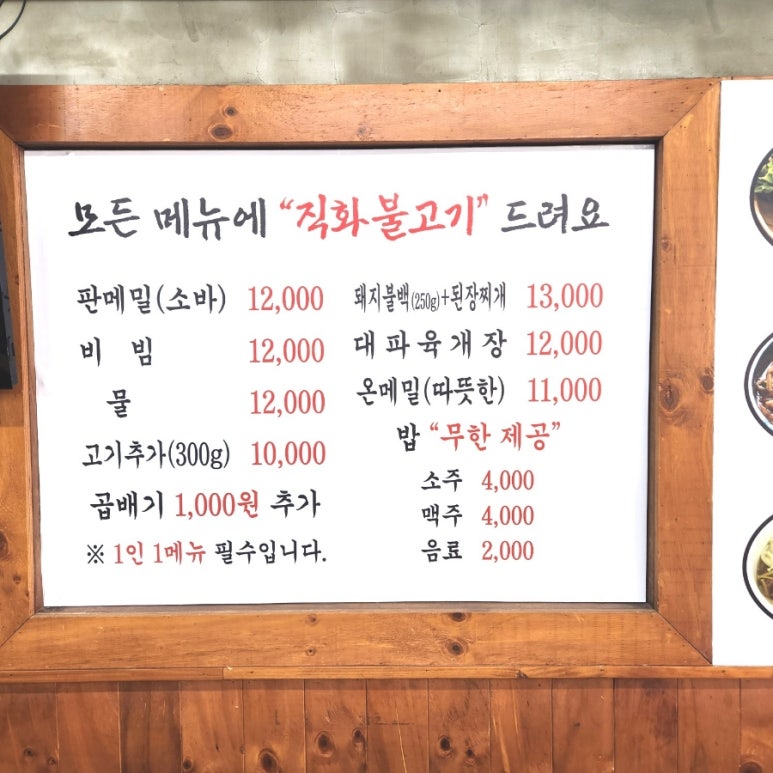 모든 메뉴에 “직화불고기” 드려요
판메밀(소바) 12,000
비 빔 12,000
물 12,000
고기추가(300g) 10,000
곱배기 1,000원 추가
※ 1인 1메뉴 필수입니다.
돼지불백(250g)+된장찌개 13,000
대파육개장 12,000
온메밀(따뜻한) 11,000
밥 “무한 제공”
소주 4,000
맥주 4,000
음료 2,000